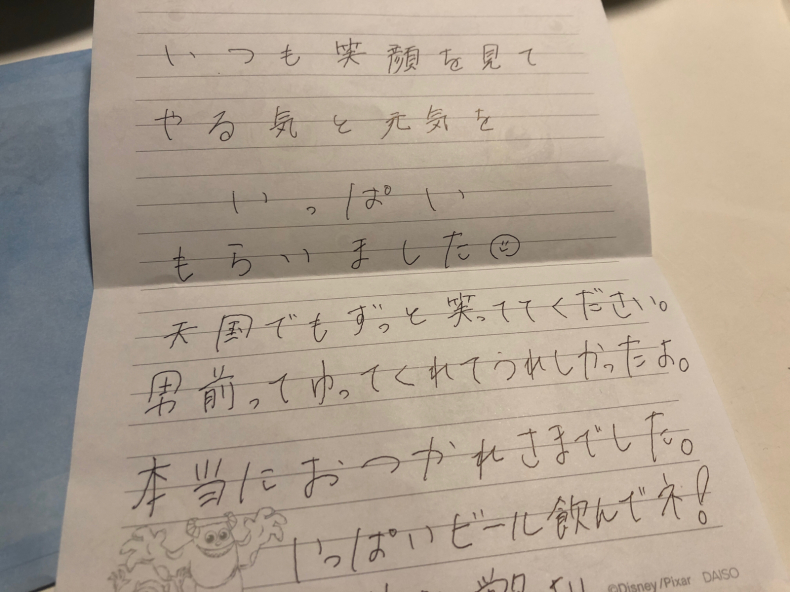 いつも笑顔を見て
やる気と元気を
いっぱい
もらいました
天国でもずっと笑っててください。
男前ってゆってくれてうれしかったよ。
本当におつかれさまでした。
いっぱいビール飲んでネ!
©Disney/Pixar DAISO